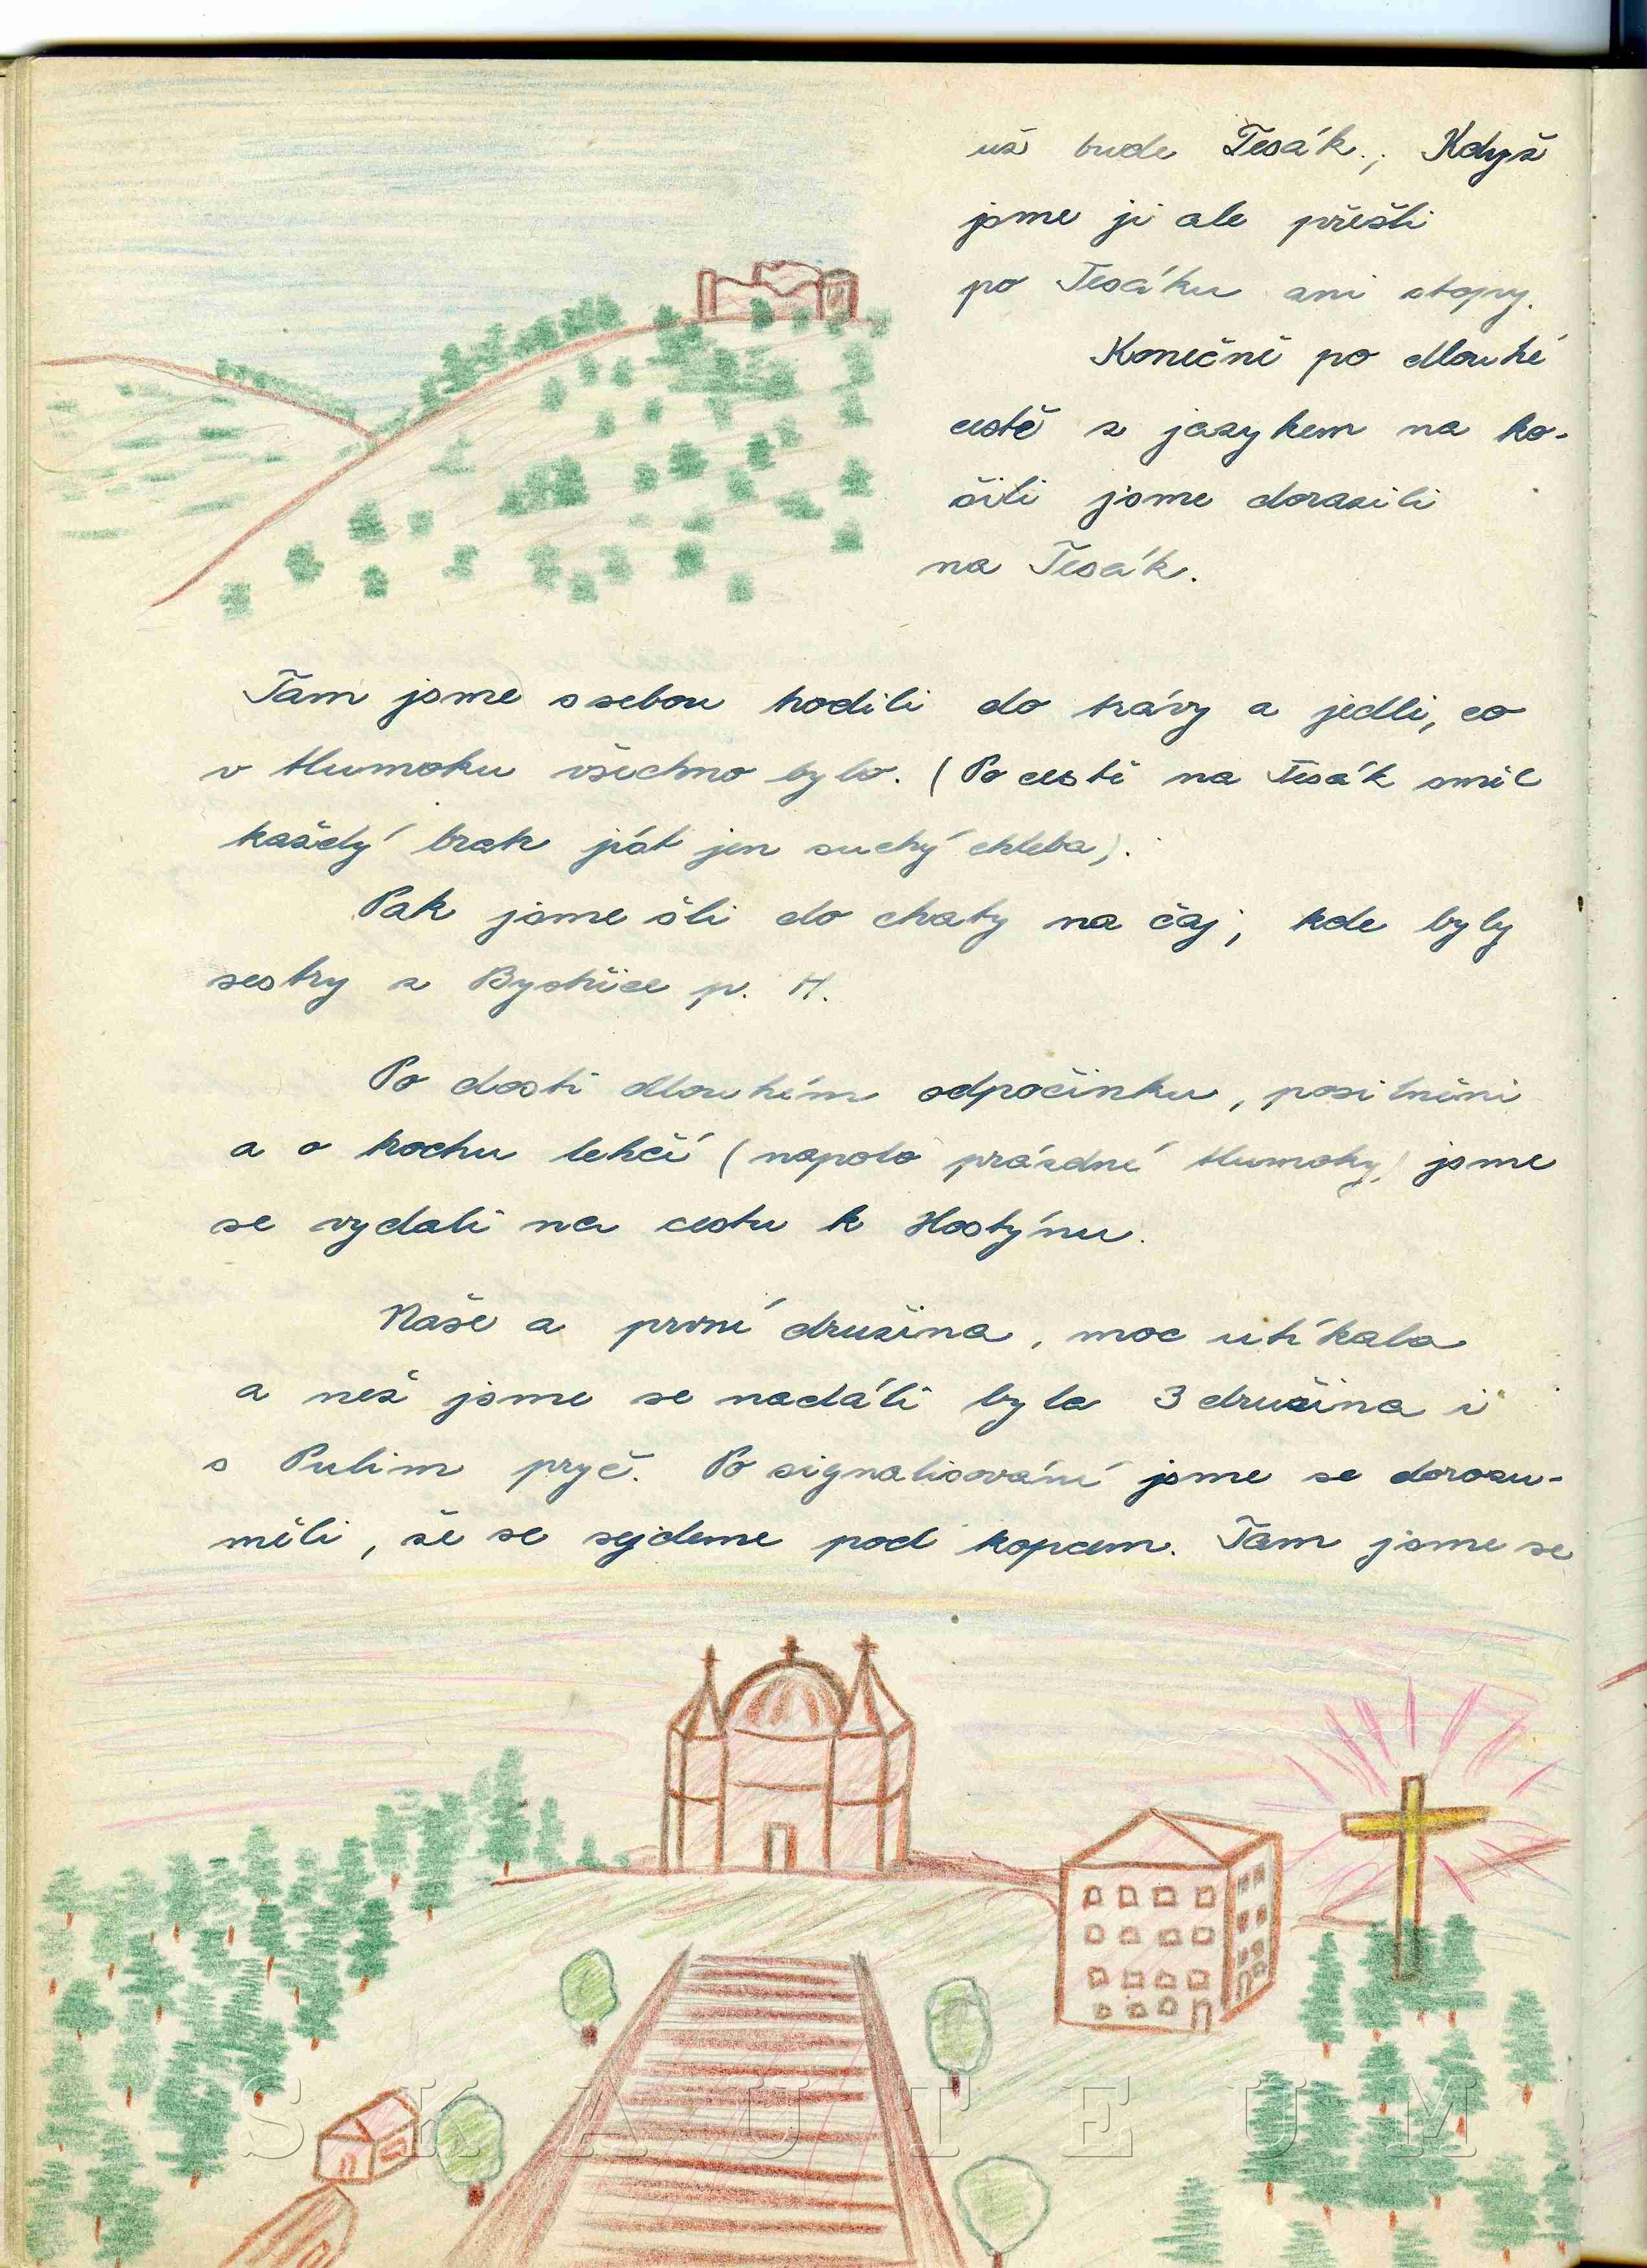 už bude Tesák., Když
jsme ji ale přešli
po Tesáku ani stopy.
Konečně po dlouhé
cestě s jazykem na ko-
šili jsme dorazili
na Tesák.
Tam jsme s sebou hodili do trávy a jedli, co
v tlumoku všechno bylo. (Po cestě na Tesák směl
každý bratr jíst jen suchý chleba).
Pak jsme šli do chaty na čaj, kde byly
sestry z Bystřice p. H.
Po dosti dlouhém odpočinku, posilněni
a o trochu lehčí (napolo prázdné tlumoky) jsme
se vydali na cestu k Hostýnu.
Naše a první družina, moc utíkala
a než jsme se nadáli byla 3 družina i
s Pulim pryč. Po signalisování jsme se dorozu-
měli, že se sejdeme pod kopcem. Tam jsme se
SKAUTEUM